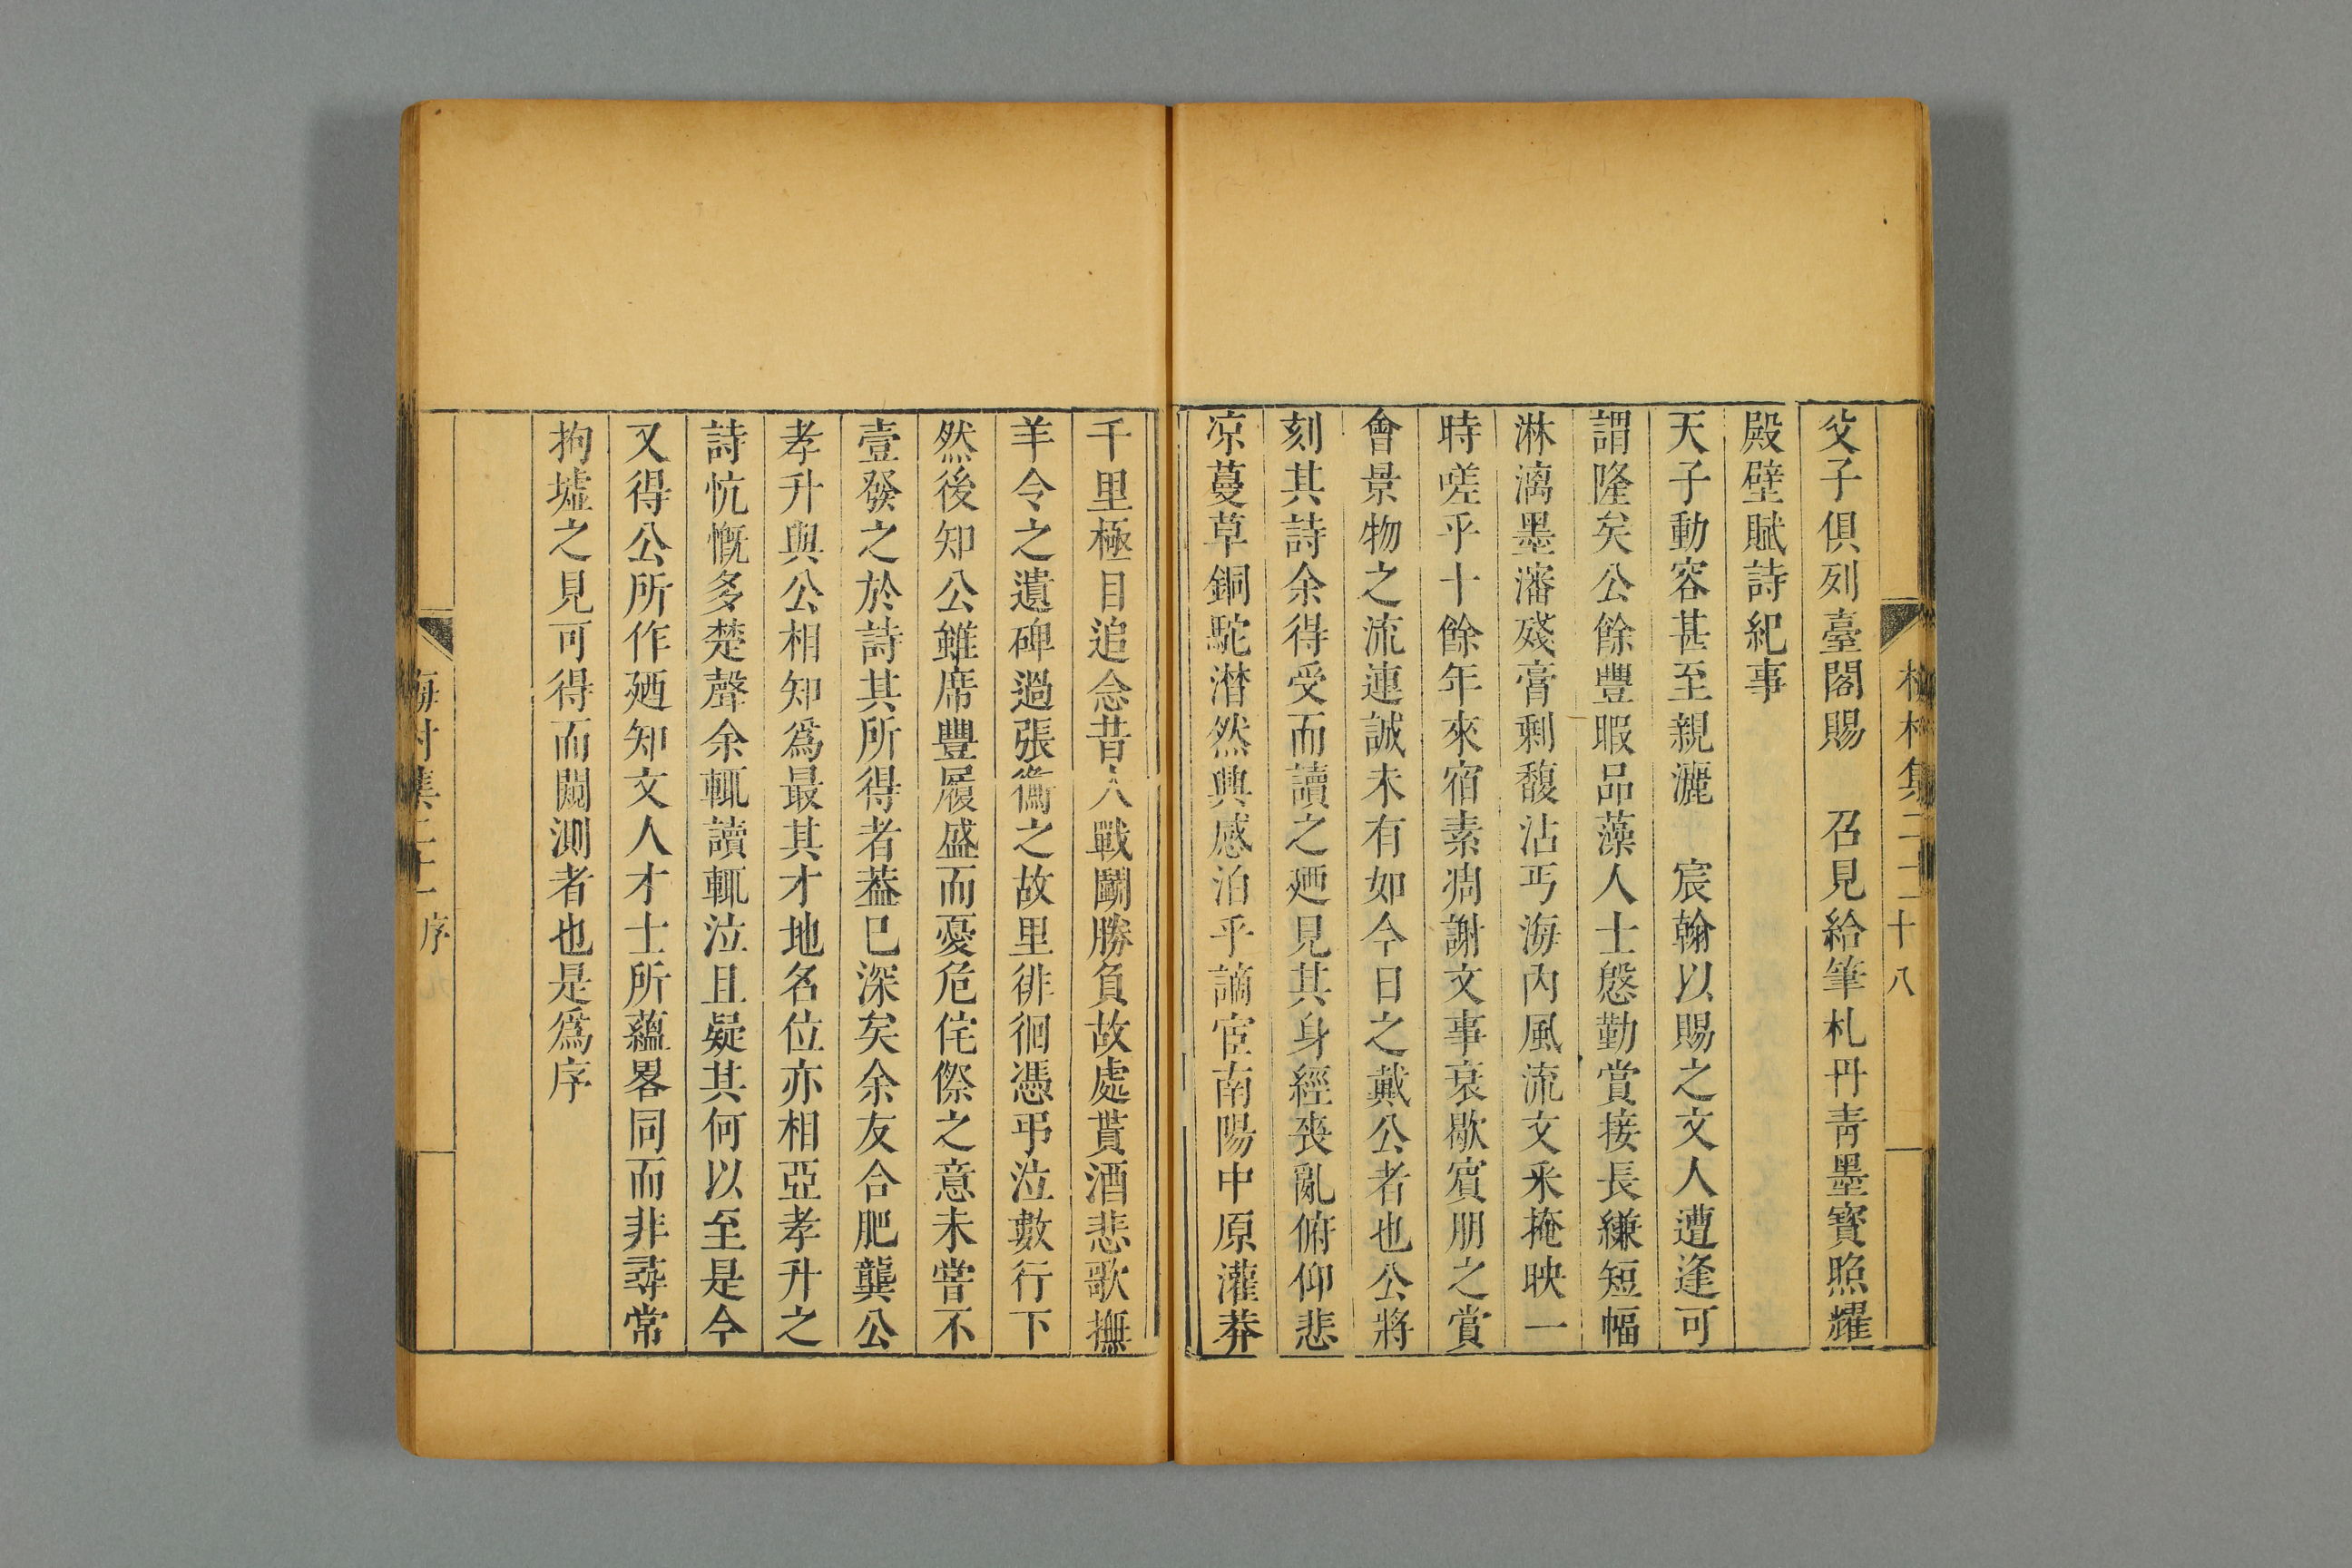 父子俱列臺閣賜　召見給筆札丹青墨寶照耀
殿壁賦詩紀事
天子動容甚至親灑　宸翰以賜之文人遭逢可
謂隆矣公餘豐暇品藻人士慇勤賞接長縑短幅
淋漓墨瀋殘膏剩馥沾丐海內風流文采掩映一
時嗟乎十餘年來宿素凋謝文事衰歇賓朋之賞
會景物之流連誠未有如今日之戴公者也公將
刻其詩余得受而讀之廼見其身經喪亂俯仰悲
凉蔓草銅駝潸然興感泊乎謫宦南陽中原灌莽
千里極目追念昔人戰鬭勝負故處貰酒悲歌撫
羊令之遺碑過張衡之故里徘徊憑弔泣數行下
然後知公雖席豐履盛而憂危侘傺之意未嘗不
壹發之於詩其所得者葢已深矣余友合肥龔公
孝升與公相知爲最其才地名位亦相亞孝升之
詩忼慨多楚聲余輒讀輒泣且疑其何以至是今
又得公所作廼知文人才士所蘊畧同而非尋常
拘墟之見可得而闚測者也是爲序
梅村集二十　序
十八